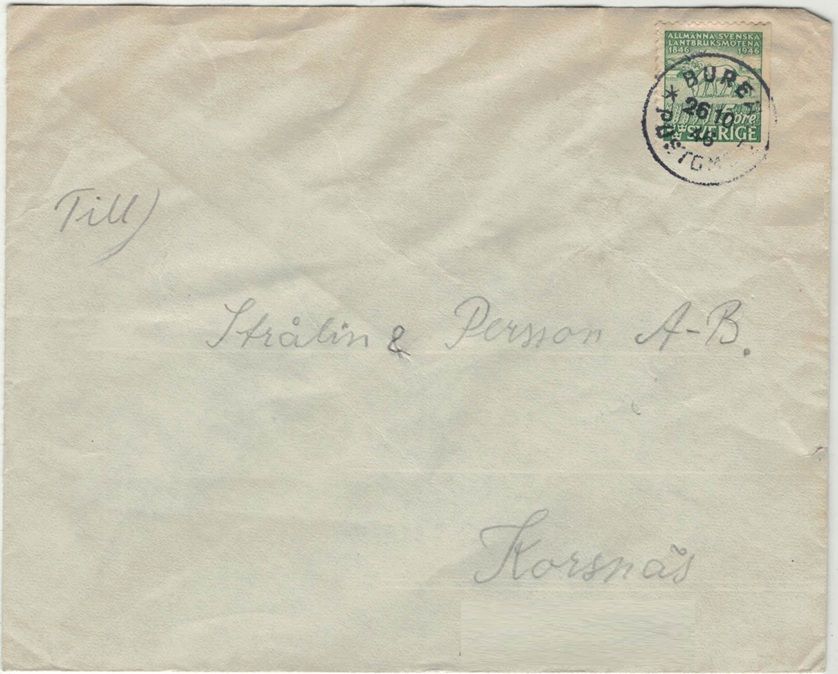 ALLMÄNNA SVENSKA
LANTBRUKSMÖTENA
1846 1946
öre
SVERIGE
26 10
46
Till)
Strålin & Persson A-B.
Korsnäs